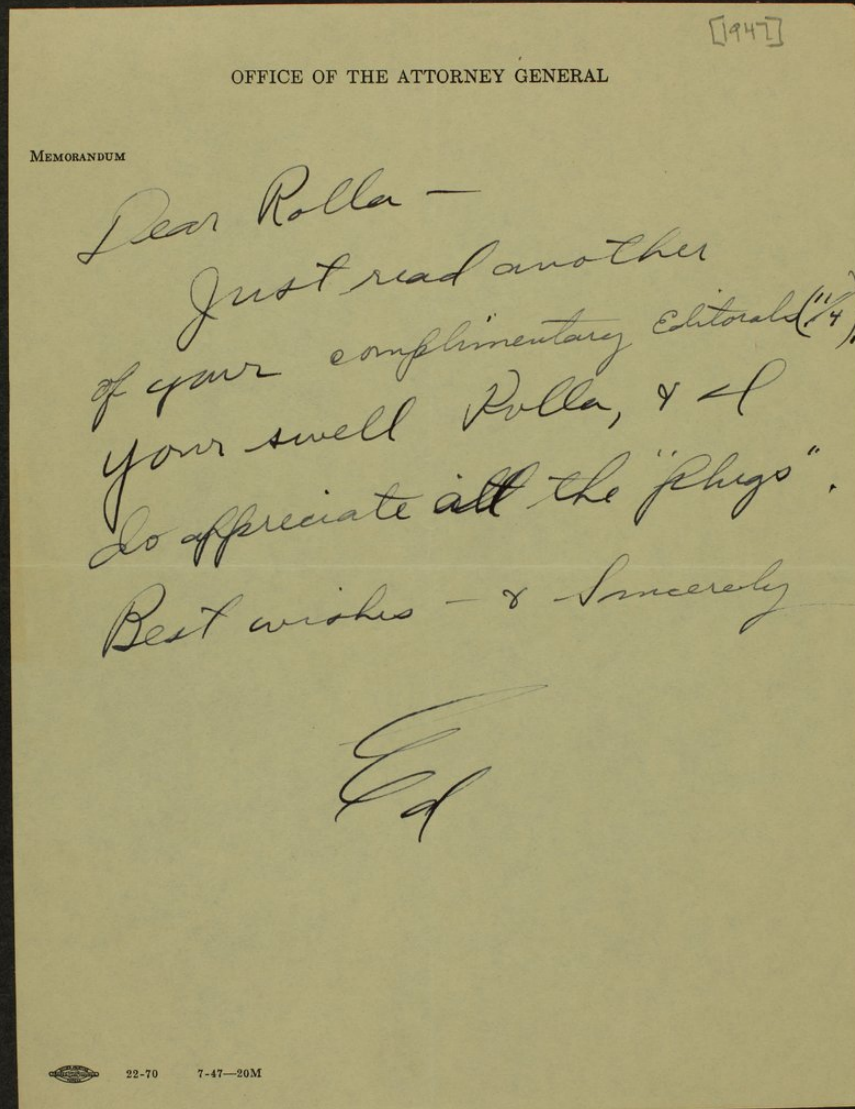 [1947]
OFFICE OF THE ATTORNEY GENERAL
MEMORANDUM
Dear Rolla —
Just read another
of your complimentary Editorals (11/4).
Your swell Rolla, & I
do appreciate all the "plugs".
Best wishes — & Sincerely
Ed
22-70 7-47—20M